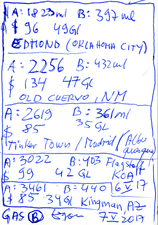 A: 1823 ml B: 397 ml
$ 96 49 Gl
EDMOND (OKLAHOMA CITY)
A: 2256 B: 432 ml
$ 134 47 Gl
OLD CUERVO, NM
A: 2619 B: 361 ml
$ 85 35 GL
Tinker Town / Madrid / Albu
A: 3022 B: 403 Flagstaff
$ 99 42 GL KOA
A: 3461 B: 440 6 V 17
$ 85 34 Gl Kingman AZ
GAS B 7 V 2017